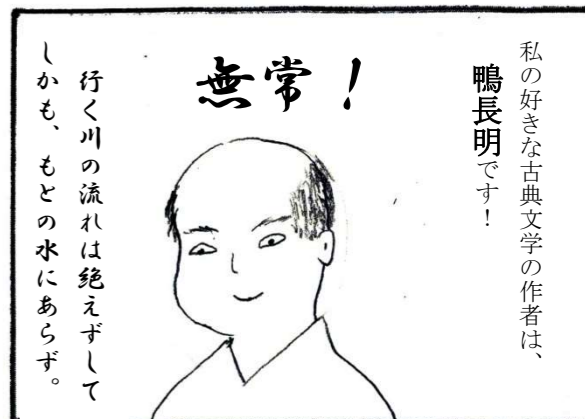 私の好きな古典文学の作者は、
鴨長明です！
無常！
行く川の流れは絶えずして
しかも、もとの水にあらず。